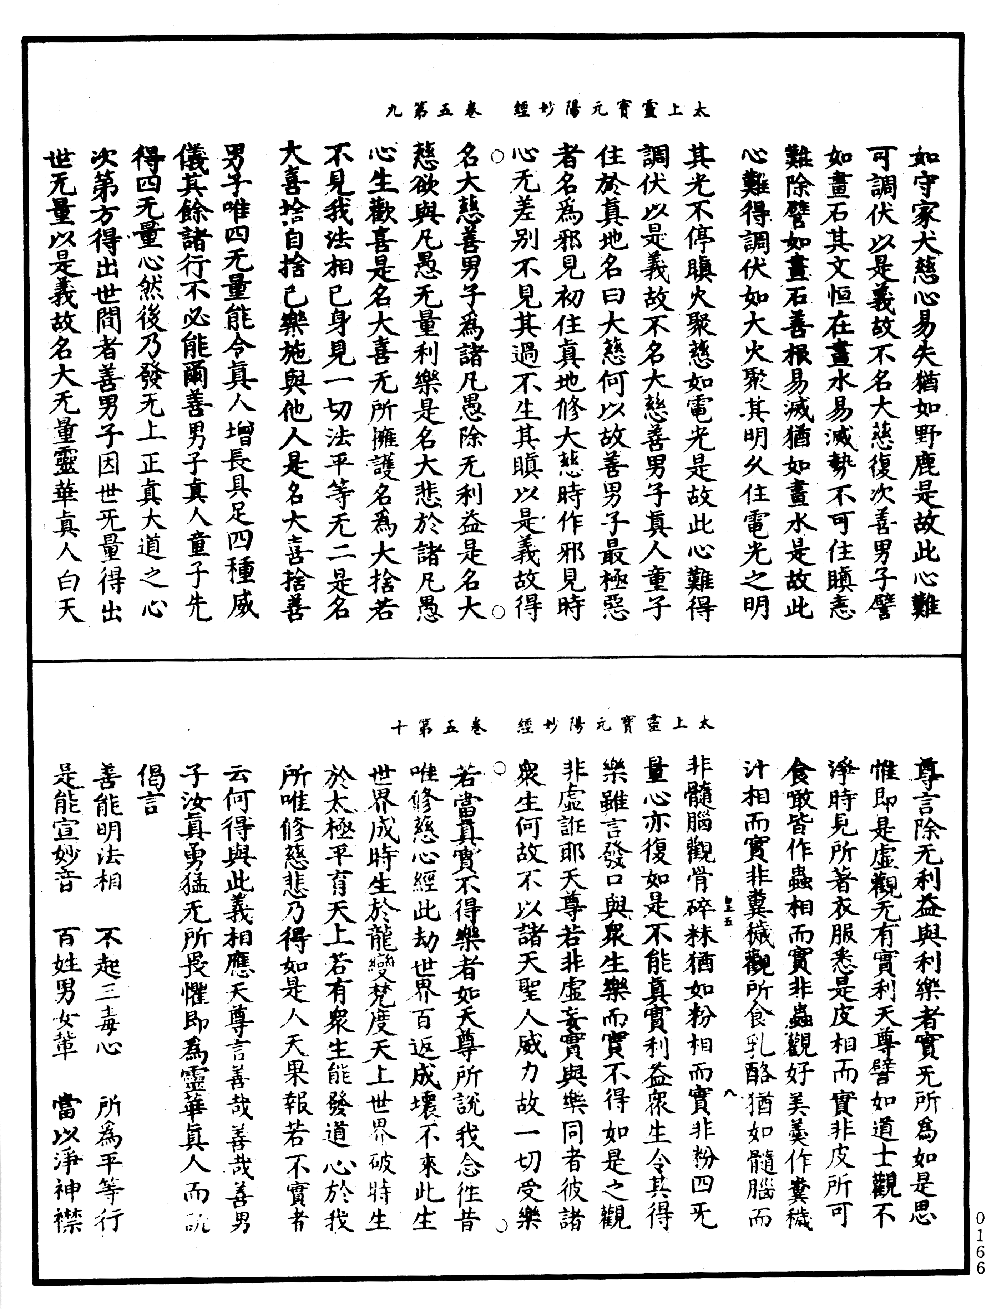 太上靈寶元陽妙經　卷五第九
如守家犬慈心易失猶如野鹿是故此心難
可調伏以是義故不名大慈復次善男子譬
如畫石其文恒在畫水易滅勢不可住瞋恚
難除譬如畫石善根易滅猶如畫水是故此
心難得調伏如大火聚其明久住電光之明
其光不停瞋火聚慈如電光是故此心難得
調伏以是義故不名大慈善男子真人童子
住於真地名曰大慈何以故善男子最極惡
者名為邪見初住真地修大慈時作邪見時
心无差别不見其過不生其瞋以是義故得
名大慈善男子為諸凡愚除无利益是名大
慈欲與凡愚无量利樂是名大悲於諸凡愚
心生歡喜是名大喜无所擁護名為大捨若
不見我法相已身見一切法平等无二是名
大喜捨自捨已樂施與他人是名大喜捨善
男子唯四无量能令真人增長具足四種威
儀其餘諸行不必能爾善男子真人童子先
得四无量心然後乃發无上正真大道之心
次第方得出世間者善男子因世无量得出
世无量以是義故名大无量靈華真人白天
太上靈寶元陽妙經　卷五第十
尊言除无利益與利樂者實无所為如是思
惟即是虛觀无有實利天尊譬如道士觀不
淨時見所著衣服悉是皮相而實非皮所可
食噉皆作蟲相而實非蟲觀好美羹作糞穢
汁相而實非糞穢觀所食乳酪猶如髓腦而
非髓腦觀骨碎粖猶如粉相而實非粉四无
量心亦復如是不能真實利益衆生令其得
樂雖言發口與衆生樂而實不得如是之觀
非虛誑耶天尊若非虛妄實與樂同者彼諸
衆生何故不以諸天聖人威力故一切受樂
若當真實不得樂者如天尊所說我念往昔
唯修慈心經此劫世界百返成壞不來此生
世界成時生於龍變梵度天上世界破時生
於太極平育天上若有衆生能發道心於我
所唯修慈悲乃得如是人天果報若不實者
云何得與此義相應天尊言善哉善哉善男
子汝真勇猛无所畏懼即為靈華真人而說
偈言
善能明法相　不起三毒心　所為平等行
是能宣妙音　百姓男女輩　當以淨神襟
0166